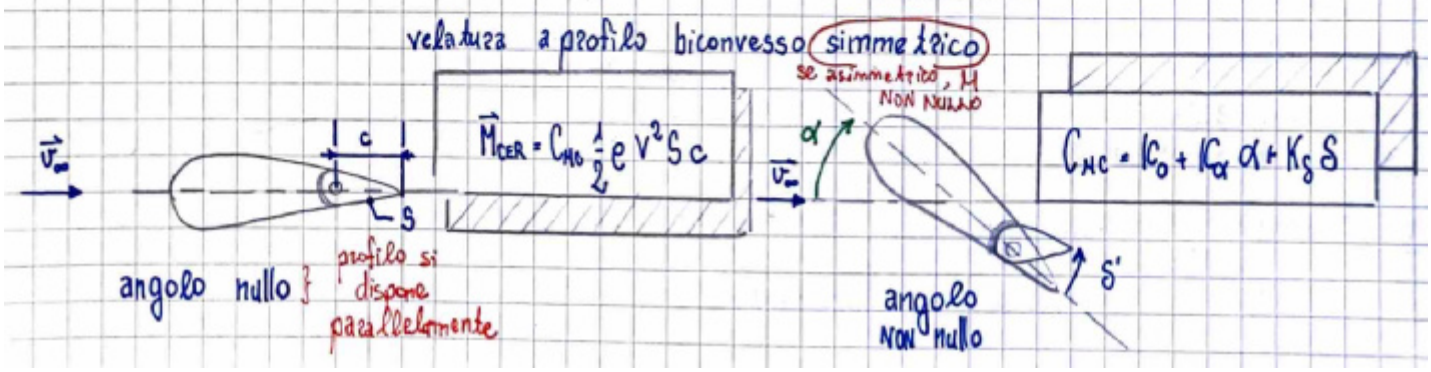 velatura a profilo biconvesso simmetrico
se asimmetrico, M
NON NULLO
c
M⃗CER = CMC 1/2 ρ V² S c
α
CMC = K0 + Kα α + Kδ δ
v⃗∞
v⃗∞
S
angolo nullo } profilo si
dispone
parallelamente
δ'
angolo
NON nullo